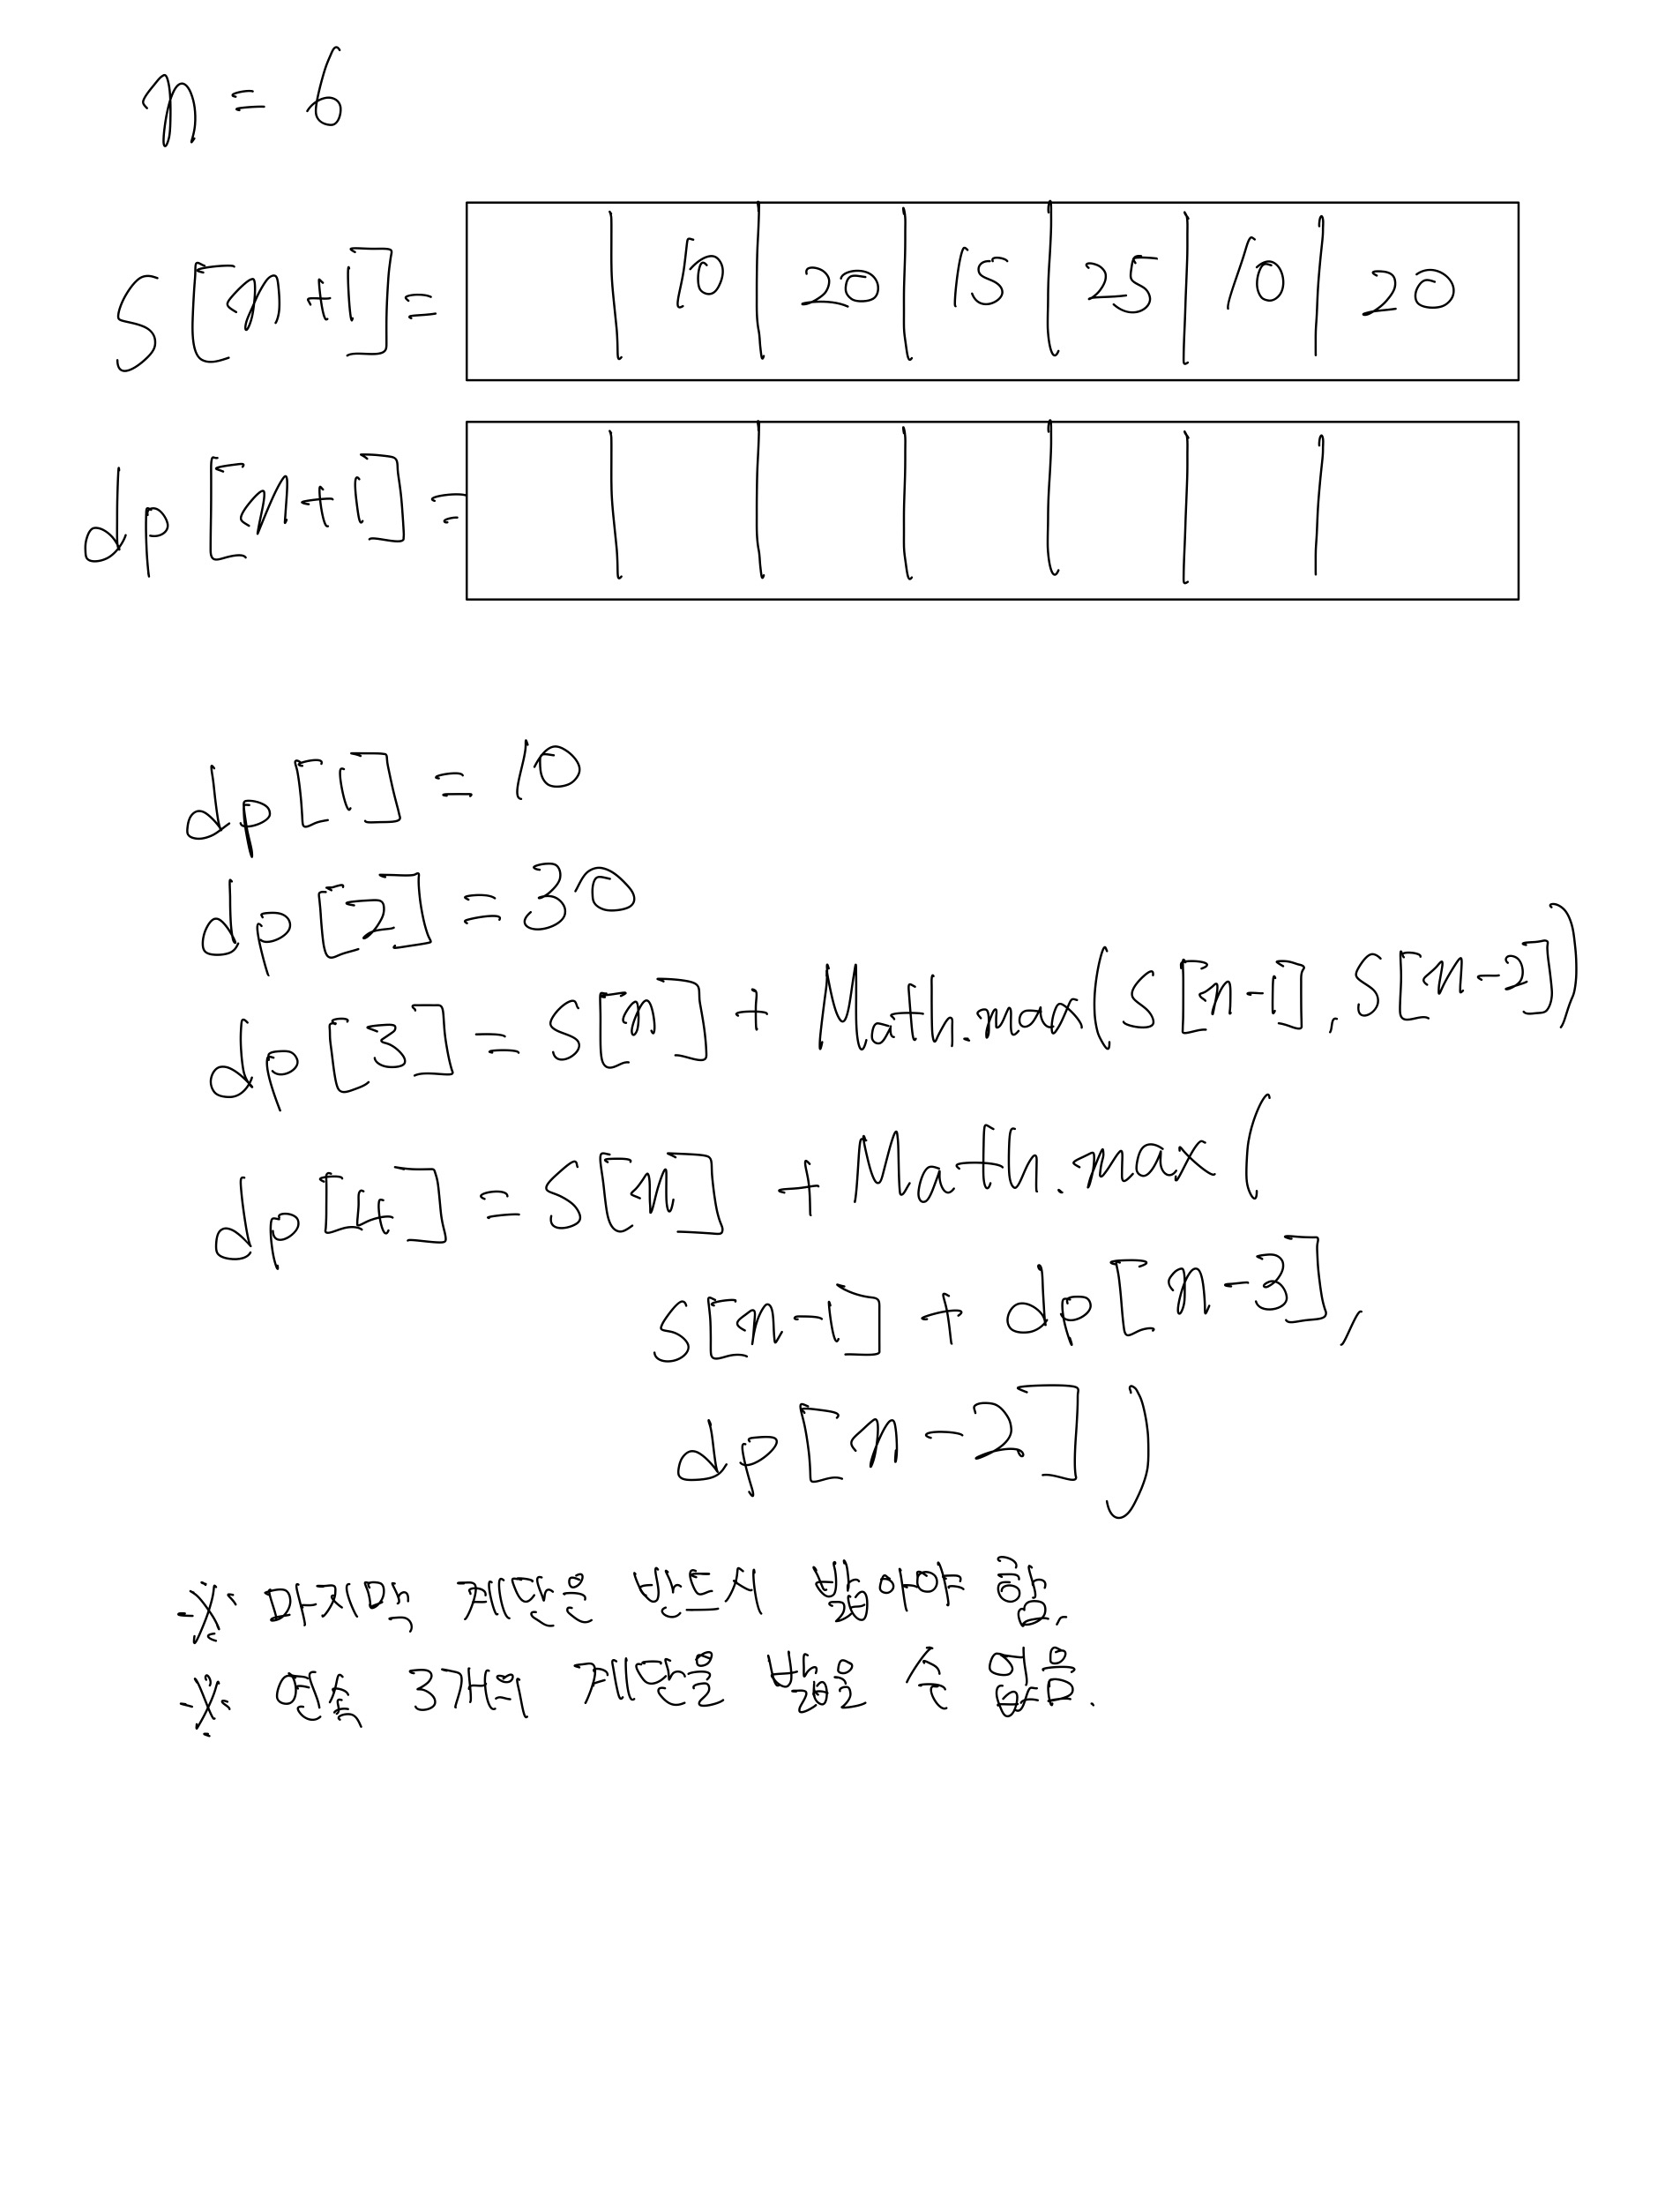 n = 6
S[n+1]= 10 20 15 25 10 20
dp[n+1]=
dp[1] = 10
dp[2] = 30
dp[3] = S[n] + Math.max(S[n-1], S[n-2])
dp[4] = S[n] + Math.max(
S[n-1] + dp[n-3],
dp[n-2])
※ 마지막 계단은 반드시 밟아야 함.
※ 연속 3개의 계단을 밟을 수 없음.